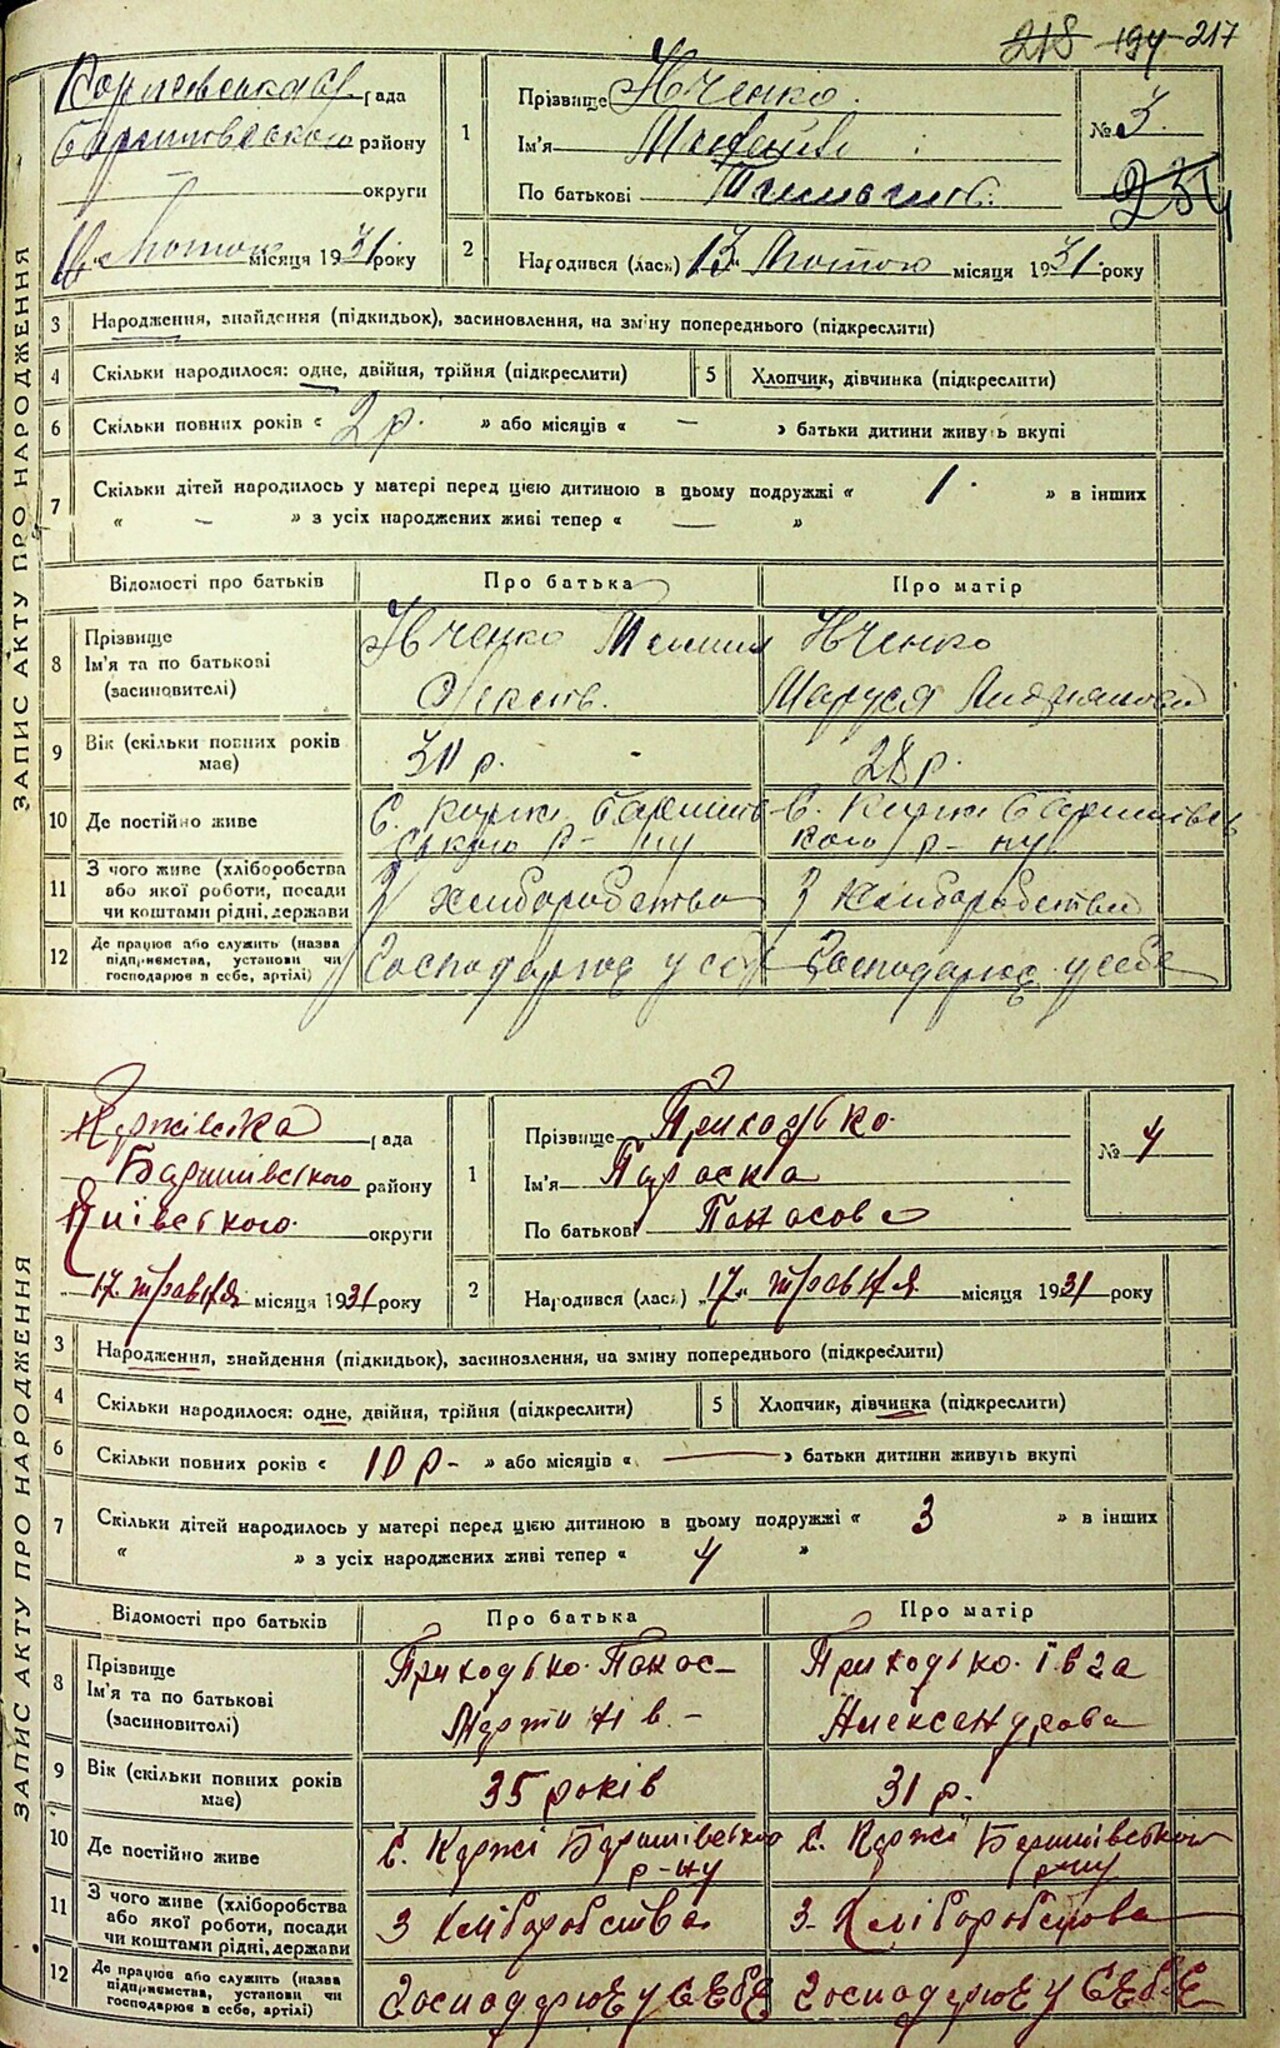 218 194 217
рада
району
округи
місяця 1931 року
1
Прізвище Івченко.
Ім'я
По батькові
№ 3.
2
Народився (лась) 13 Лютого місяця 1931 року
ЗАПИС АКТУ ПРО НАРОДЖЕННЯ
3 Народження, знайдення (підкидьок), засиновлення, на зміну попереднього (підкреслити)
4 Скільки народилося: одне, двійня, трійня (підкреслити)
5 Хлопчик, дівчинка (підкреслити)
6 Скільки повних років « 2 р. » або місяців « — » батьки дитини живуть вкупі
7 Скільки дітей народилось у матері перед цією дитиною в цьому подружжі « 1 » в інших
« — » з усіх народжених живі тепер « — »
Відомості про батьків Про батька Про матір
8 Прізвище
Ім'я та по батькові
(засиновителі)
Івченко
Івченко
Маруся
9 Вік (скільки повних років
має)
28 р.
10 Де постійно живе
11 З чого живе (хліборобства
або якої роботи, посади
чи коштами рідні, держави
З хліборобства
З хліборобства
12 Де працює або служить (назва
підприємства, установи чи
господарює в себе, артілі)
Господарює у себе
Господарює у себе
Коржівська рада
Баришівського району
Київського округи
„17. травня місяця 1931 року
1
Прізвище Приходько.
Ім'я Параска
По батькові Панасова
№ 4
2
Народився (лась) „17" травня місяця 1931 року
ЗАПИС АКТУ ПРО НАРОДЖЕННЯ
3 Народження, знайдення (підкидьок), засиновлення, на зміну попереднього (підкреслити)
4 Скільки народилося: одне, двійня, трійня (підкреслити)
5 Хлопчик, дівчинка (підкреслити)
6 Скільки повних років « 10 р - » або місяців « — » батьки дитини живуть вкупі
7 Скільки дітей народилось у матері перед цією дитиною в цьому подружжі « 3 » в інших
« » з усіх народжених живі тепер « 4 »
Відомості про батьків Про батька Про матір
8 Прізвище
Ім'я та по батькові
(засиновителі)
Приходько. Панас-
Мартинів. -
Приходько. Івга
Александрова
9 Вік (скільки повних років
має)
35 років
31 р.
10 Де постійно живе
С. Коржі Баришівського
р-ну
С. Коржі Баришівського
р-ну
11 З чого живе (хліборобства
або якої роботи, посади
чи коштами рідні, держави
З Хліборобства
З Хліборобства
12 Де працює або служить (назва
підприємства, установи чи
господарює в себе, артілі)
Господарює у себе
Господарює у себе